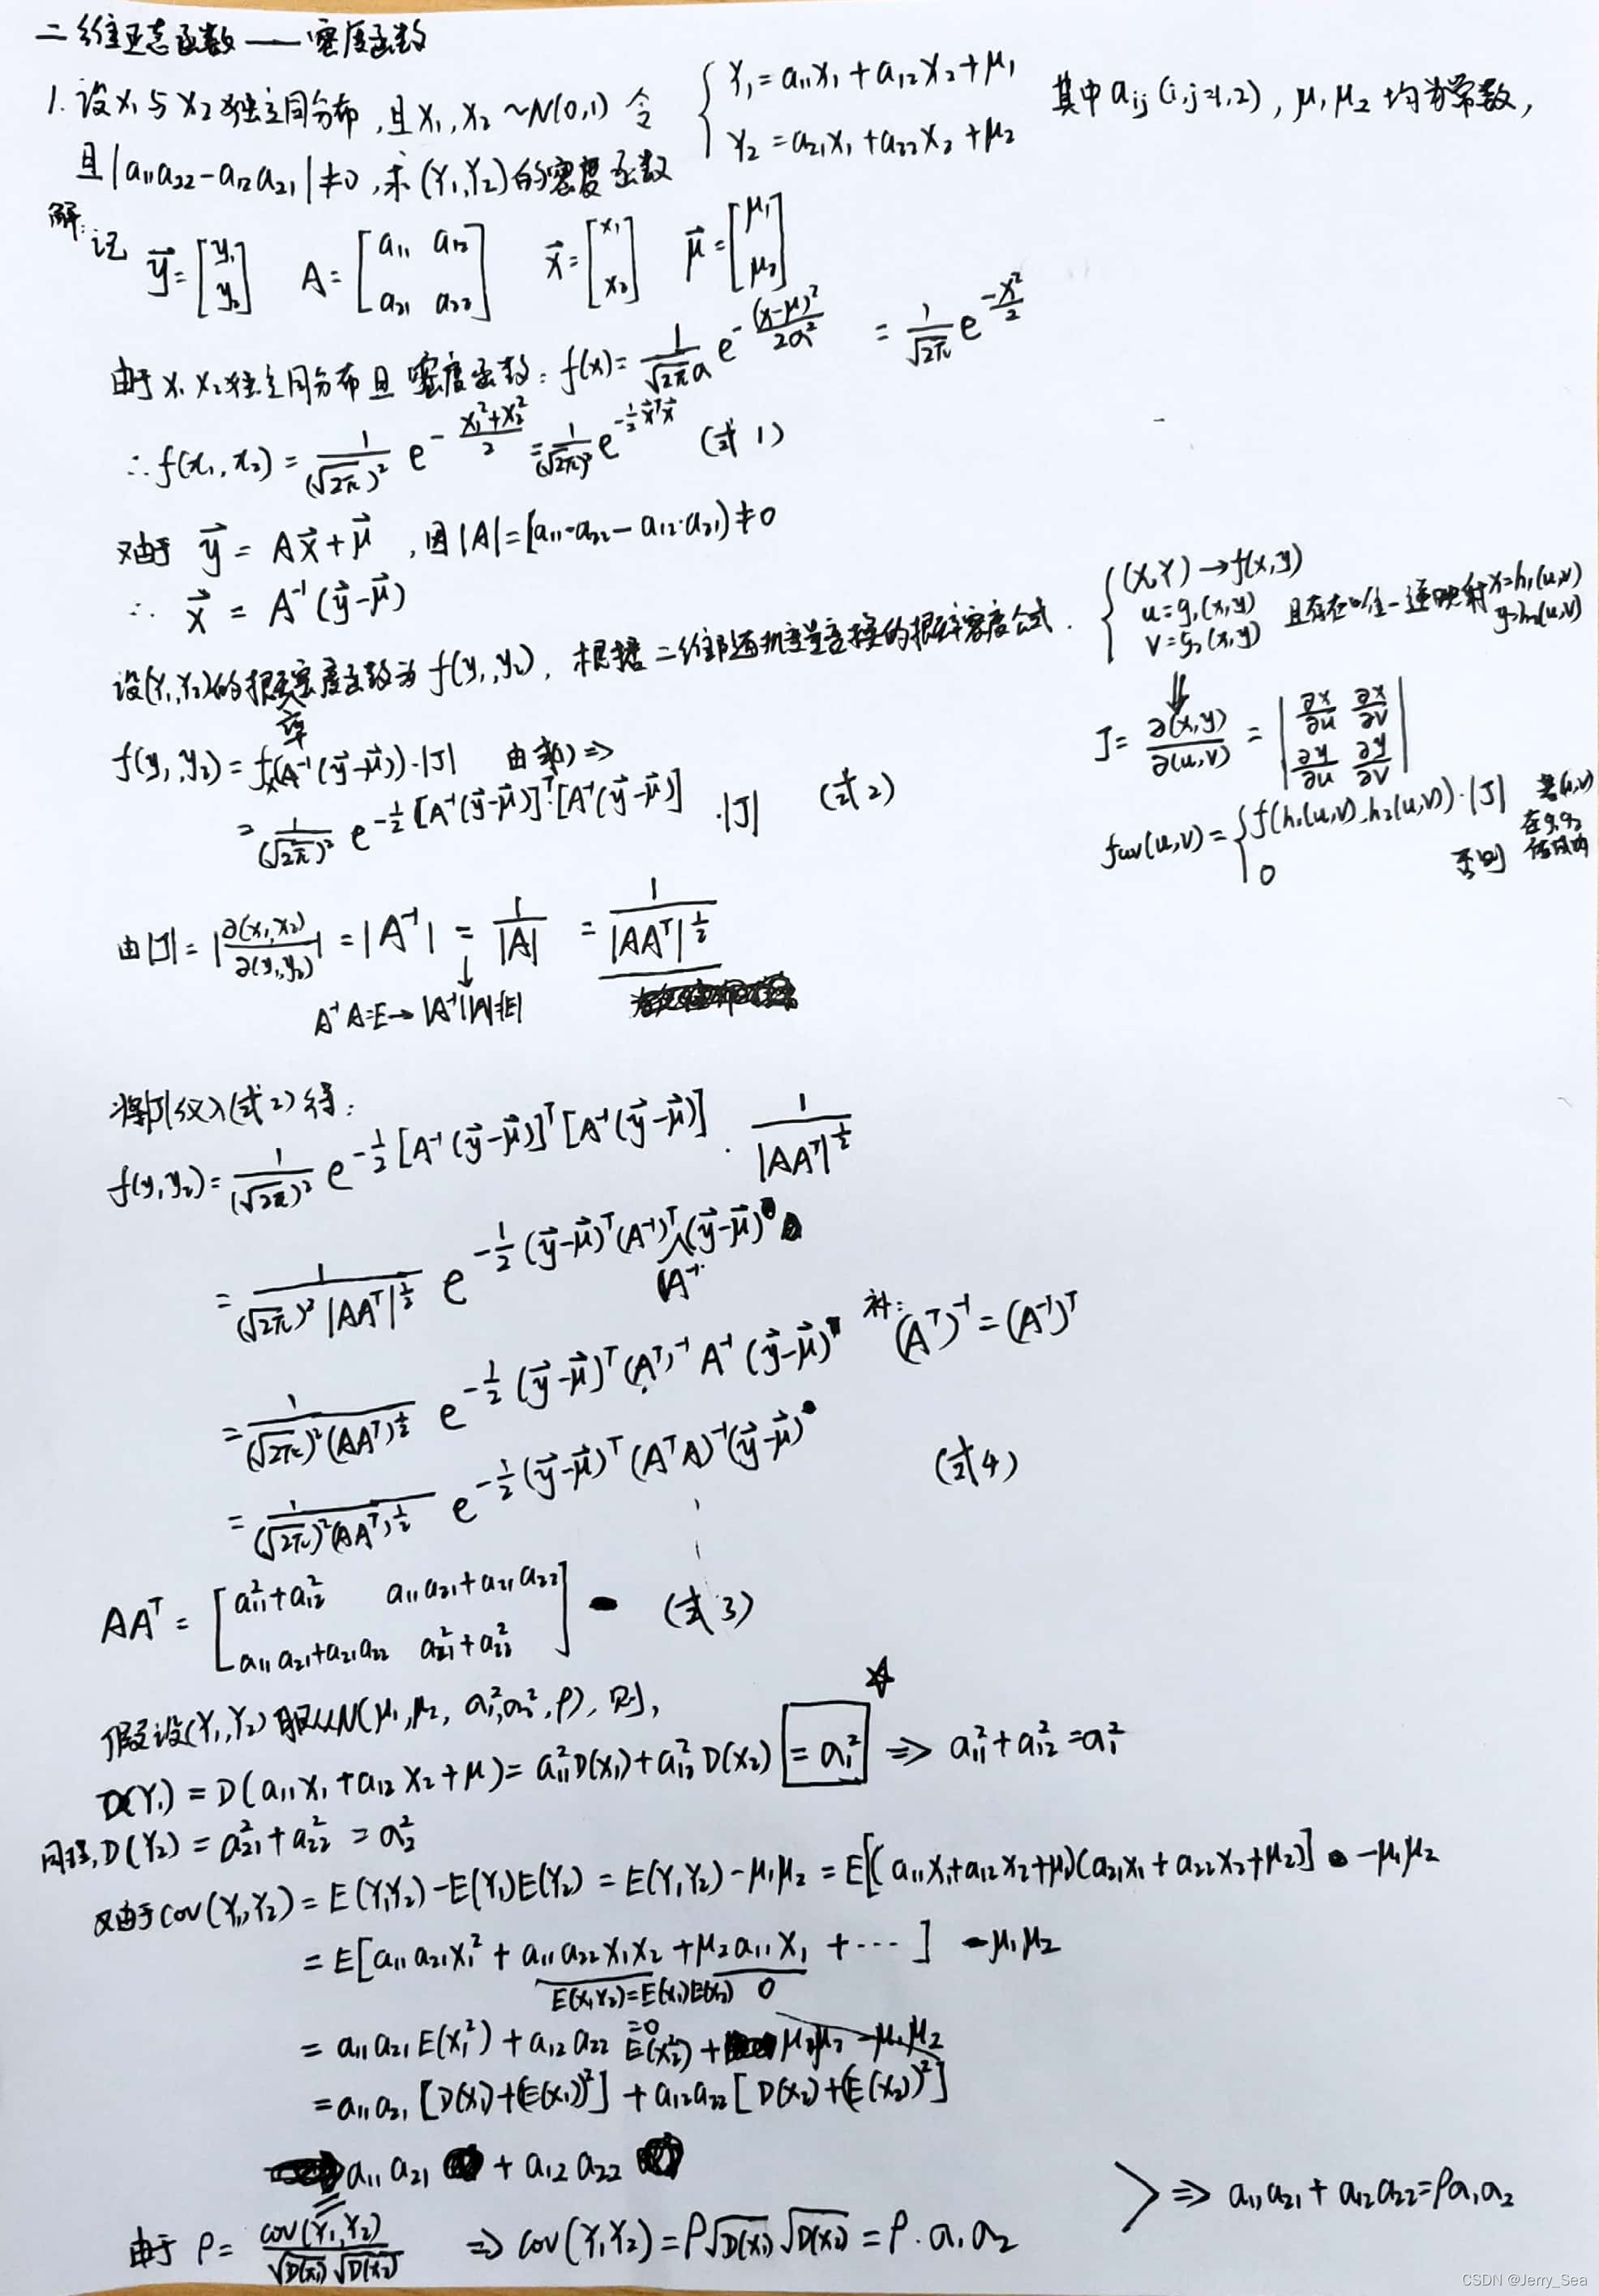 二维正态函数——密度函数
1. 设X₁与X₂独立同分布,且X₁,X₂~N(0,1) 令 { Y₁=a₁₁X₁+a₁₂X₂+μ₁ 其中aij(i,j=1,2),μ₁,μ₂均为常数,
Y₂=a₂₁X₁+a₂₂X₂+μ₂
且|a₁₁a₂₂-a₁₂a₂₁|≠0,求(Y₁,Y₂)的密度函数
解: 记 y⃗=[y₁ y₂] A=[a₁₁ a₁₂ a₂₁ a₂₂] x⃗=[x₁ x₂] μ⃗=[μ₁ μ₂]
由于X₁ X₂独立同分布且密度函数: f(x)=1/(√2π a) e^-(x-μ)²/2a² = 1/√2π e^-x²/2
∴f(x₁,x₂)=1/(√2π)² e^-(x₁²+x₂²)/2 = 1/(√2π)² e^-½x⃗ᵀx⃗ (式1)
又由于 y⃗=Ax⃗+μ⃗,因|A|=(a₁₁·a₂₂-a₁₂·a₂₁)≠0
∴ x⃗=A⁻¹(y⃗-μ⃗)
设(Y₁,Y₂)的概率密度函数为f(y₁,y₂),根据二维随机变量变换的概率密度公式.
{ (X,Y)→f(x,y)
u=g₁(x,y) 且存在唯一逆映射x=h₁(u,v)
v=g₂(x,y) y=h₂(u,v)
⇓
J=∂(x,y)/∂(u,v)=|∂x/∂u ∂x/∂v ∂y/∂u ∂y/∂v|
fuv(u,v)={ f(h₁(u,v),h₂(u,v))·|J| 若(u,v)在g₁,g₂值域内
0 否则
f(y₁,y₂)=fₓ(A⁻¹(y⃗-μ⃗))·|J| 由式1)⇒
=1/(√2π)² e^-½[A⁻¹(y⃗-μ⃗)]ᵀ·[A⁻¹(y⃗-μ⃗)] ·|J| (式2)
由|J|=|∂(x₁,x₂)/∂(y₁,y₂)|=|A⁻¹|=1/|A|=1/|AAᵀ|^½
↓
A⁻¹A=E→|A⁻¹||A|=|E|
将|J|代入(式2)得:
f(y₁,y₂)=1/(√2π)² e^-½[A⁻¹(y⃗-μ⃗)]ᵀ[A⁻¹(y⃗-μ⃗)] · 1/|AAᵀ|^½
=1/((√2π)²|AAᵀ|^½) e^-½(y⃗-μ⃗)ᵀ(A⁻¹)ᵀA⁻¹(y⃗-μ⃗)
=1/((√2π)²(AAᵀ)^½) e^-½(y⃗-μ⃗)ᵀ(Aᵀ)⁻¹A⁻¹(y⃗-μ⃗) 补: (Aᵀ)⁻¹=(A⁻¹)ᵀ
=1/((√2π)²(AAᵀ)^½) e^-½(y⃗-μ⃗)ᵀ(AᵀA)⁻¹(y⃗-μ⃗) (式4)
AAᵀ=[a₁₁²+a₁₂² a₁₁a₂₁+a₂₁a₂₂
a₁₁a₂₁+a₂₁a₂₂ a₂₁²+a₂₂²] (式3)
假设(Y₁,Y₂)服从N(μ₁,μ₂,a₁²,a₂²,ρ),则,
D(Y₁)=D(a₁₁X₁+a₁₂X₂+μ)=a₁₁²D(X₁)+a₁₂²D(X₂) =a₁² ☆ ⇒ a₁₁²+a₁₂²=a₁²
同理,D(Y₂)=a₂₁²+a₂₂²=a₂²
又由于cov(Y₁,Y₂)=E(Y₁Y₂)-E(Y₁)E(Y₂)=E(Y₁Y₂)-μ₁μ₂=E[(a₁₁X₁+a₁₂X₂+μ₁)(a₂₁X₁+a₂₂X₂+μ₂)]-μ₁μ₂
=E[a₁₁a₂₁X₁²+a₁₁a₂₂X₁X₂+μ₂a₁₁X₁+⋯]-μ₁μ₂
E(X₁X₂)=E(X₁)E(X₂)=0 0
=a₁₁a₂₁E(X₁²)+a₁₂a₂₂E(X₂²)+μ₁μ₂-μ₁μ₂
=a₁₁a₂₁[D(X₁)+(E(X₁))²]+a₁₂a₂₂[D(X₂)+(E(X₂))²]
=a₁₁a₂₁+a₁₂a₂₂
由于ρ=cov(Y₁,Y₂)/(√D(X₁)√D(X₂)) ⇒ cov(Y₁Y₂)=ρ√D(X₁)√D(X₂)=ρ·a₁a₂
⇒ a₁₁a₂₁+a₁₂a₂₂=ρa₁a₂
CSDN @Jerry_Sea